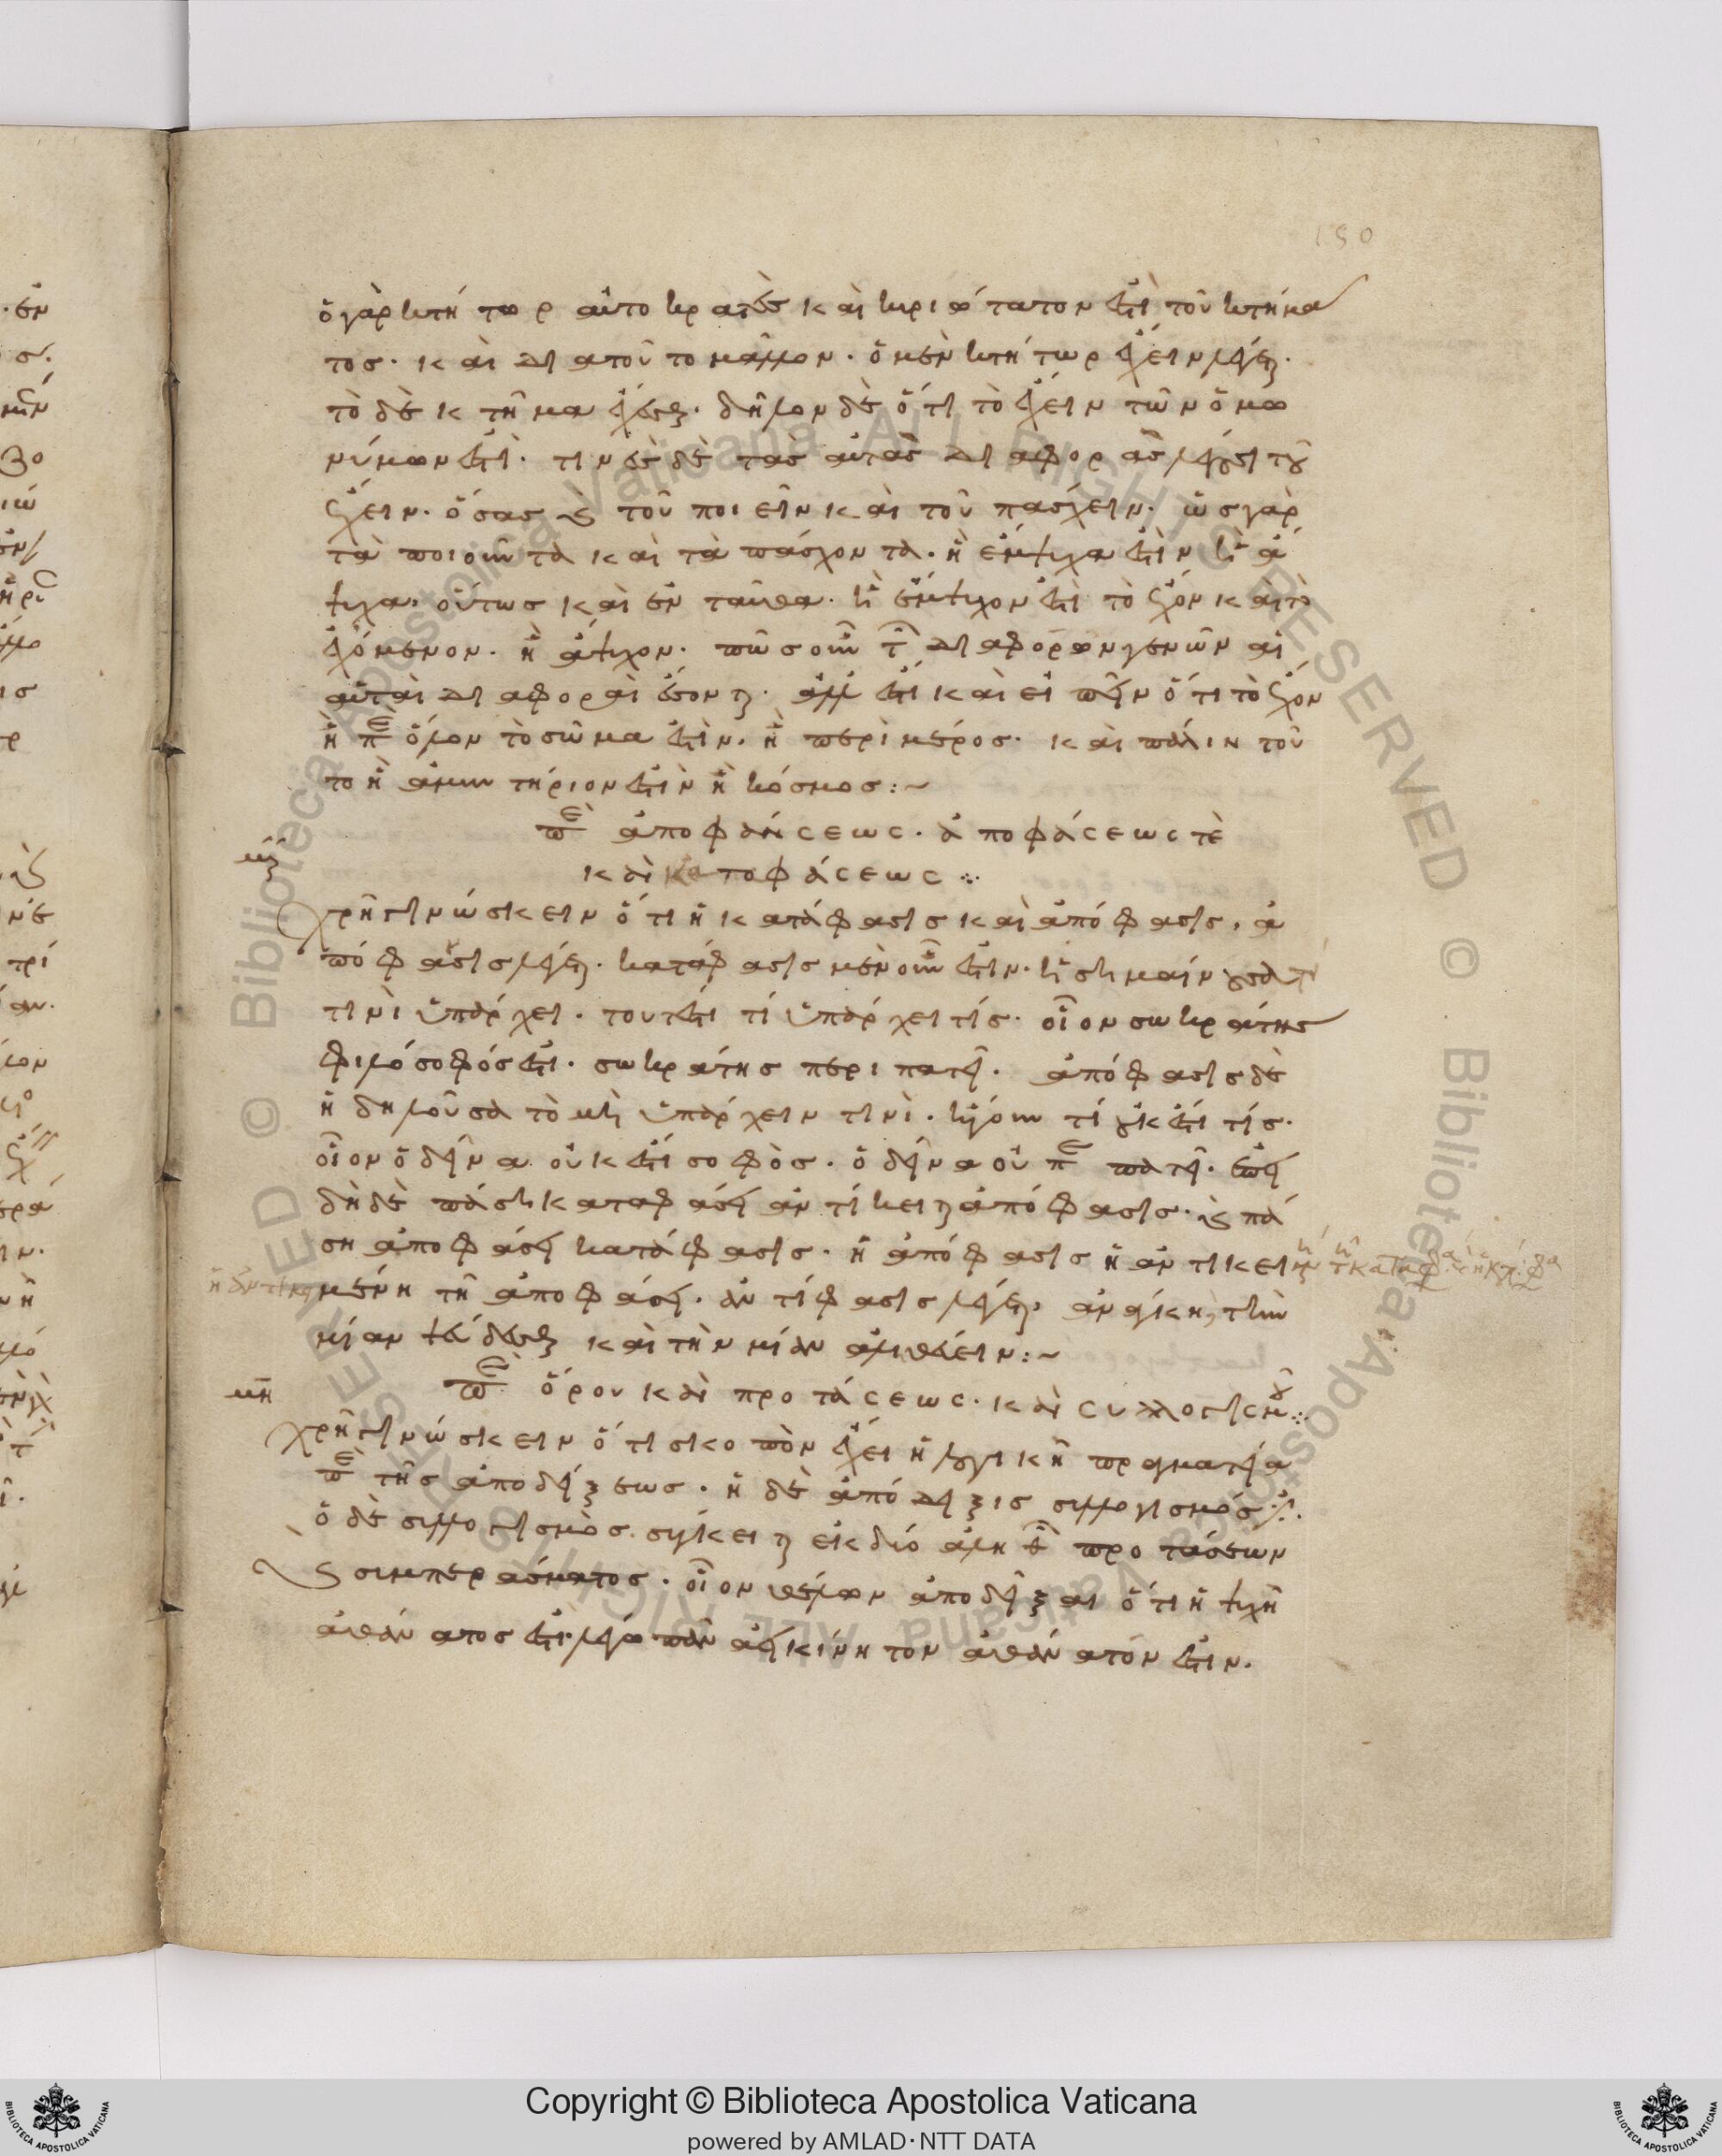 150
ὁ γὰρ κτήτωρ αὐτοκρατὲς καὶ κυριώτατον ἐστὶ τοῦ κτήμα
τος· καὶ διατοῦτο μᾶλλον· ὁ μὲν κτήτωρ ἔχειν λέγεται·
τὸ δὲ κτῆμα ἔχεσθαι· δῆλον δὲ ὅτι τὸ ἔχειν τῶν ὁμω
νύμων ἐστί· τινὲς δὲ τὰς αὐτὰς διαφορὰς λέγουσι τοῦ
ἔχειν· ὅσας καὶ τοῦ ποιεῖν καὶ τοῦ πάσχειν· ὡς γὰρ
τὰ ποιοῦντα καὶ τὰ πάσχοντα· ἢ ἔμψυχα ἐστὶν ἢ ἄ
ψυχα· οὕτως καὶ ἐνταῦθα· ἢ ἔμψυχον ἐστὶ τὸ ἔχον καὶ τὸ
ἐχόμενον· ἢ ἄψυχον· πῶς οὖν τῶν διαφόρων γενῶν αἱ
αὐταὶ διαφοραὶ ἔσονται· ἀλλ' ἔστι καὶ εἰπεῖν ὅτι τὸ ἔχον
ἢ περὶ ὅλον τὸ σῶμα ἐστὶν· ἢ περὶ μέρος· καὶ πάλιν τοῦ
το ἢ ἀμυντήριον ἐστὶν ἢ κόσμος:~
περὶ ἀποφάνσεως· ἀποφάσεως τὲ
μζ
καὶ καταφάσεως
χρὴ γινώσκειν ὅτι ἡ κατάφασις καὶ ἀπόφασις, ἀ
πόφασις λέγεται· κατάφασις μὲν οὖν ἐστιν· ἡ σημαίνουσα τί
τινὶ ὑπάρχει· τουτέστι τί ὑπάρχει τίς· οἷον σωκράτης
φιλόσοφός ἐστι· σωκράτης περιπατεῖ· ἀπόφασις δὲ
ἡ δηλοῦσα τὸ μὴ ὑπάρχειν τινὶ· ἤγουν τί οὐκ ἔστι τίς·
οἷον ὁ δεῖνα οὐκ ἔστι σοφὸς· ὁ δεῖνα οὐ περιπατεῖ·
δὴ δὲ πάσῃ καταφάσει ἀντίκειται ἀπόφασις· καὶ πά
ση ἀποφάσει κατάφασις· ἡ ἀπόφασις ἡ ἀντικειμένη τῇ καταφάσει
μένη τῇ ἀποφάσει· ἀντίφασις λέγεται· ἀνάγκη, τὴν
μίαν ψεύδεσθαι καὶ τὴν μίαν ἀληθεύειν:~
μη
περὶ ὅρου καὶ προτάσεως· καὶ συλλογισμοῦ
χρὴ γινώσκειν ὅτι σκοπὸν ἔχει ἡ λογικὴ πραγματεία
περὶ τῆς ἀποδείξεως· ἡ δὲ ἀπόδειξις συλλογισμός ἐστι·
ὁ δὲ συλλογισμὸς σύγκειται ἐκ δύο ἀληθῶν προτάσεων
καὶ συμπεράσματος· οἷον θέλων ἀποδεῖξαι ὅτι ἡ ψυχὴ
ἀθάνατος ἐστι· λέγω πᾶν ἀεικίνητον ἀθάνατόν ἐστιν·
Copyright © Biblioteca Apostolica Vaticana
powered by AMLAD·NTT DATA